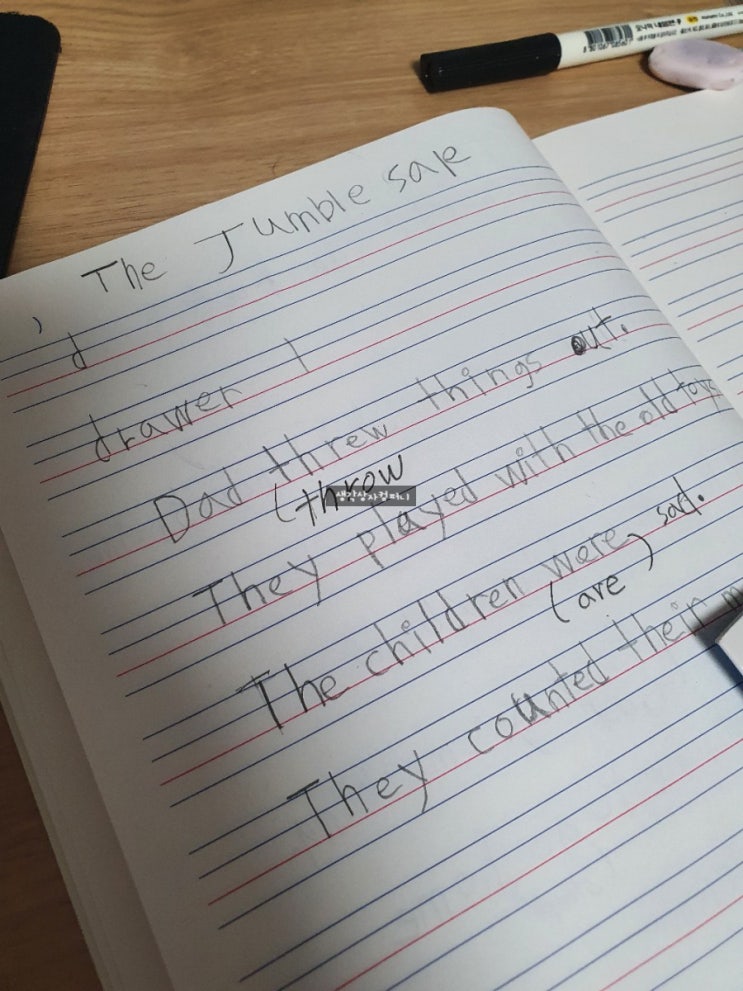 The Jumble sale
d
drawer
Dad threw things out.
(throw
생각상자컴퍼니
They played with the old toys
The children were sad.
(are)
They counted their m